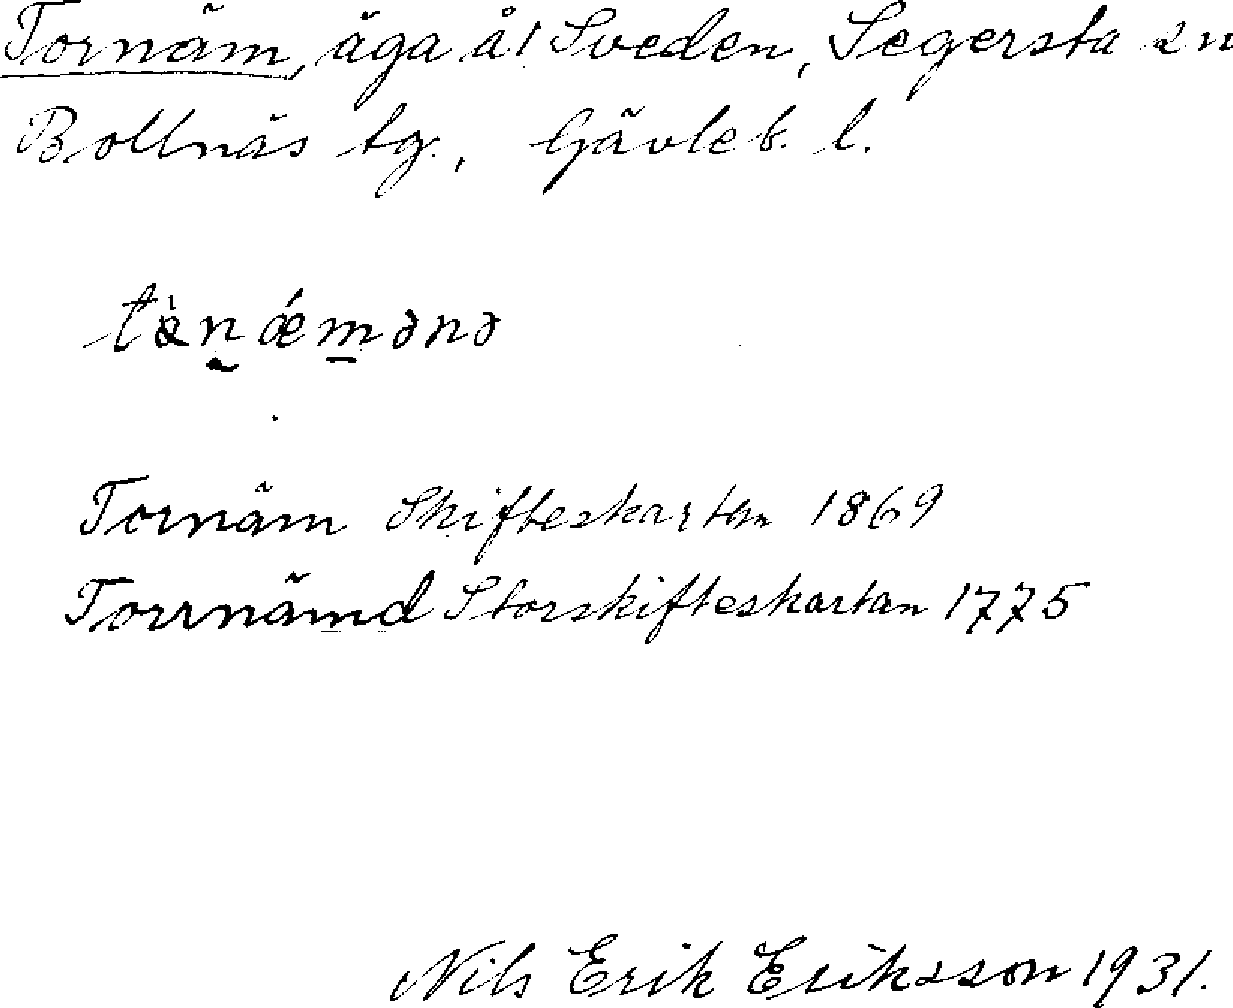 Tornäm, äga å 1 Sveden, Segersta sn
Bollnäs tg., Gävleb. l.
tàn̰ǽm̲ənə
Tornäm Skifteskartan 1869
Torrnämd Storskifteskartan 1775
Nils Erik Eriksson 1931.